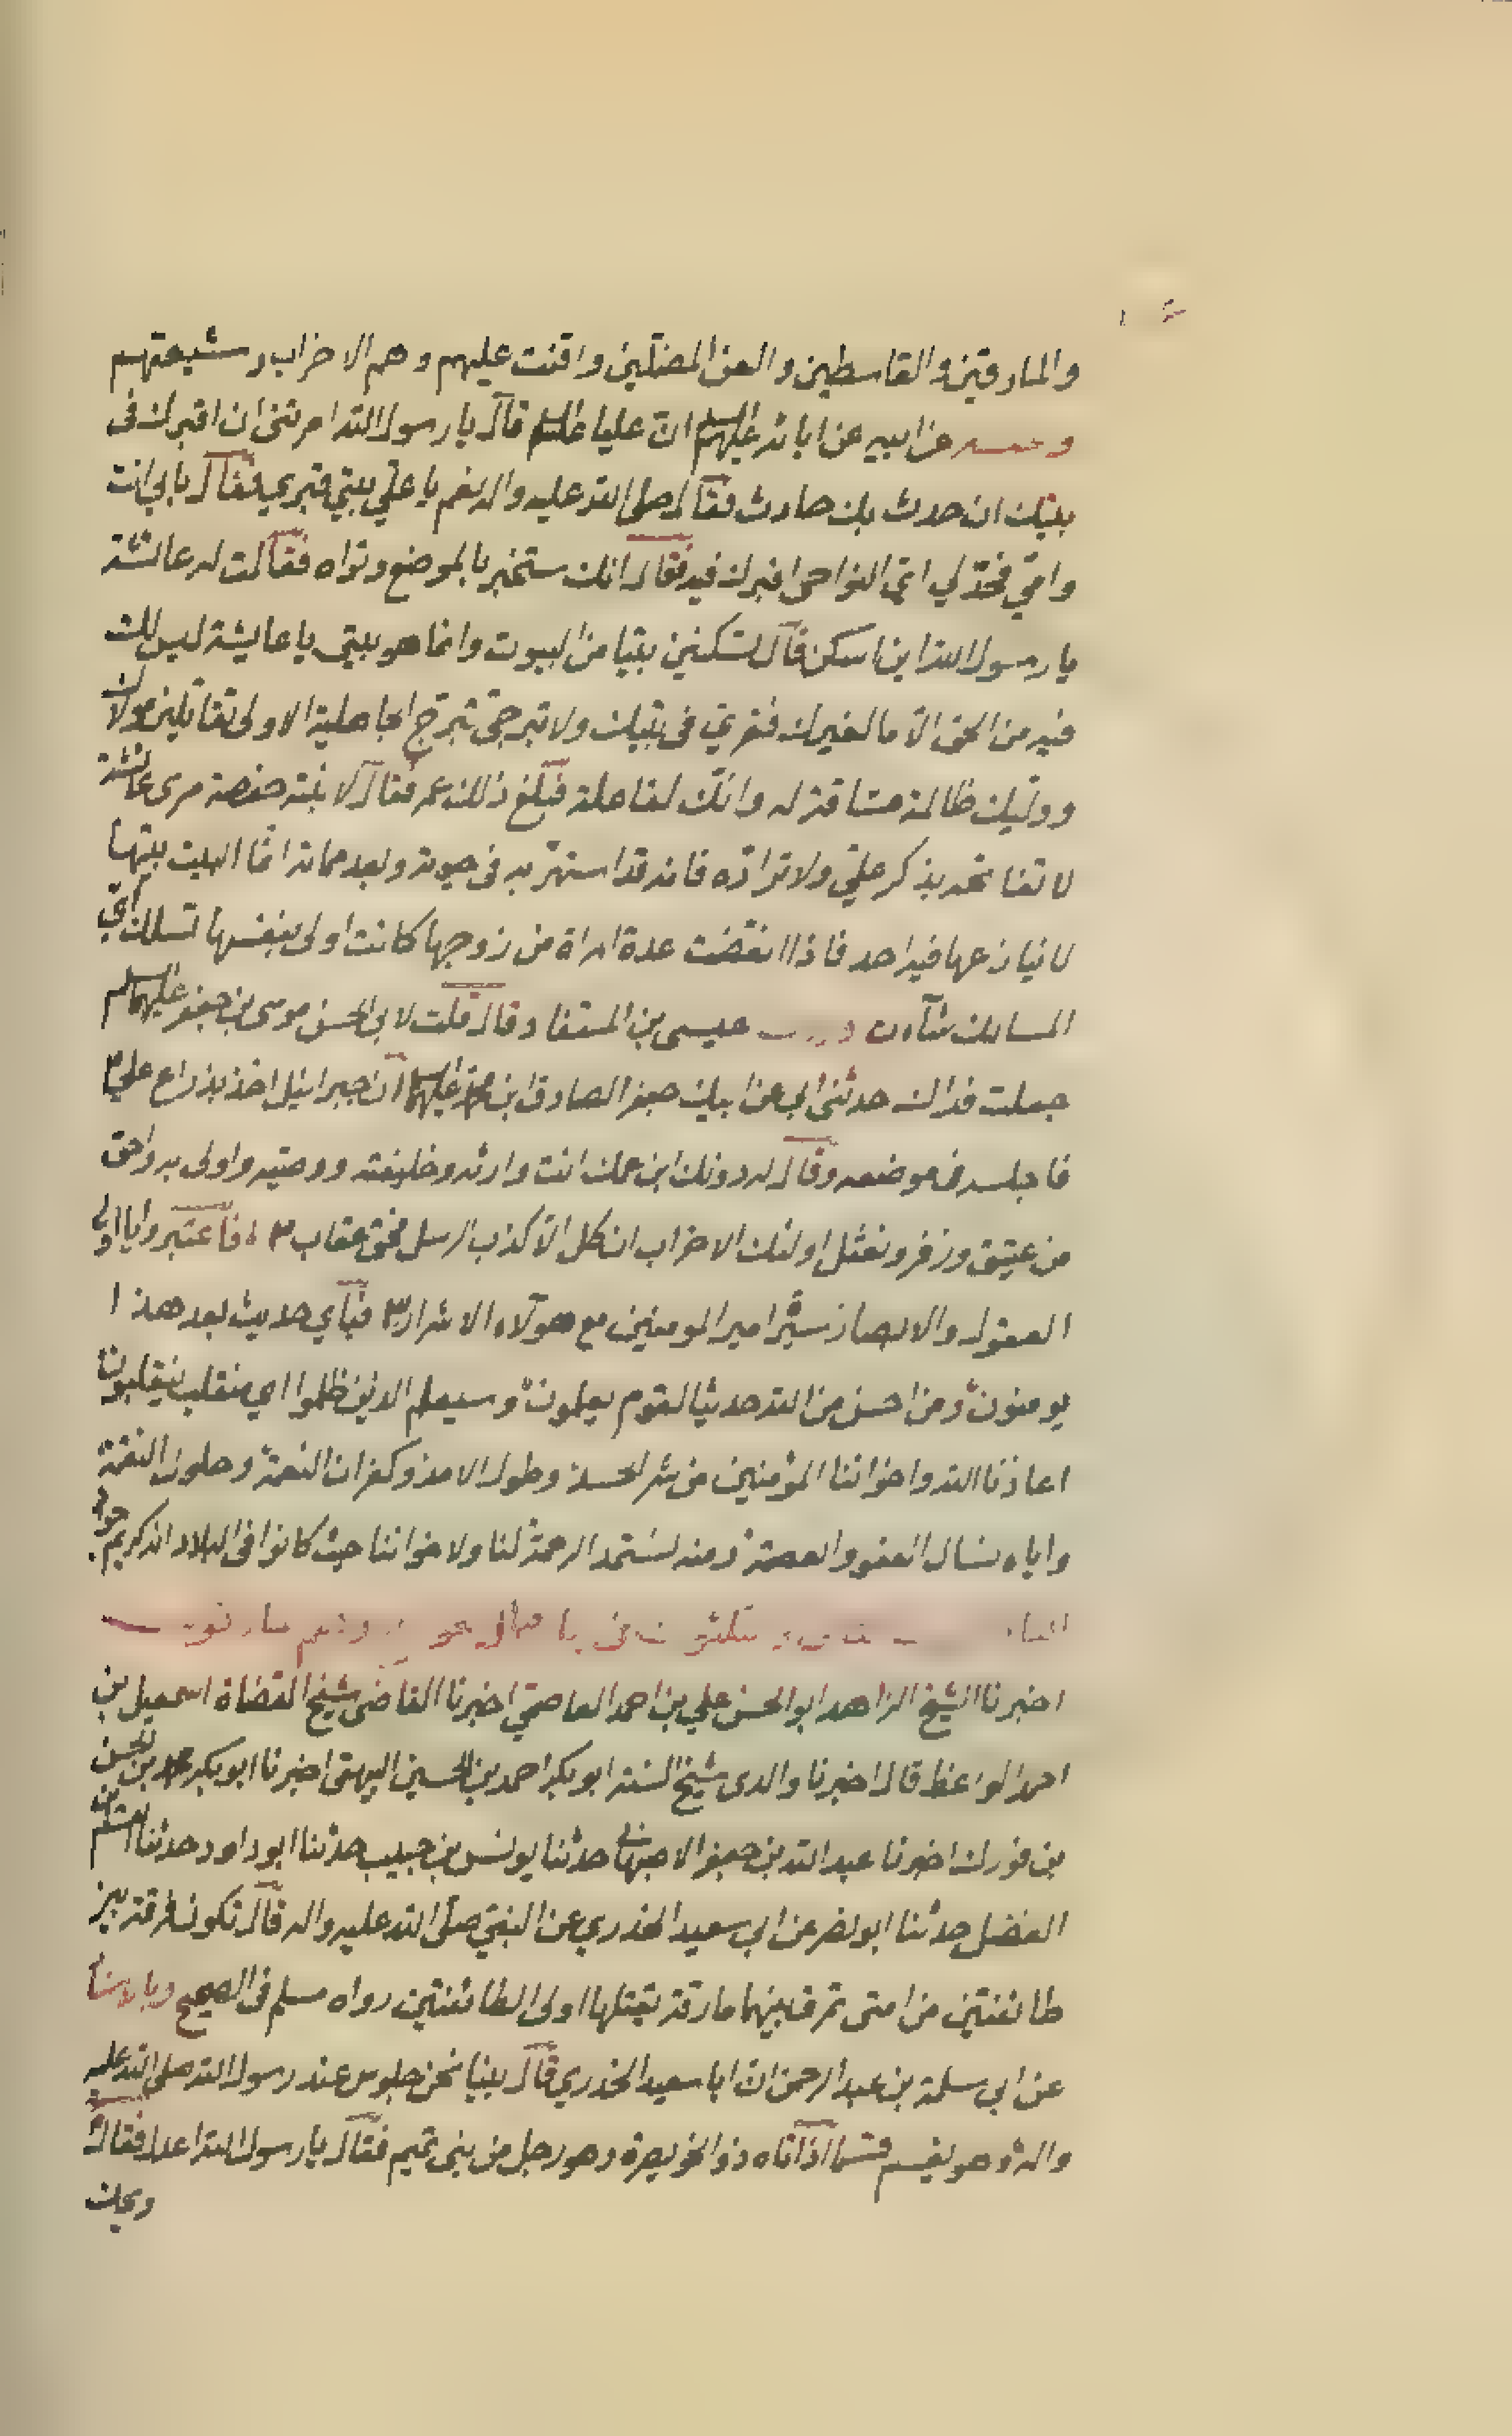 والمارقين والقاسطين والعن المضلين واقنت عليهم وهم الاحزاب وشيعتهم
وعنه عن ابيه عن ابائه عليهم السلم ان عليا عليه السلم قال يا رسول الله امرتني ان اقبرك في
بيتك ان حدث بك حادث فقال صلى الله عليه واله نعم يا علي بيتي قبري فقال بابي انت
وامي فحد لي اي النواحي اقبرك فيه فقال انك ستخبر بالموضع وتراه فقالت له عائشة
يا رسول الله اين اسكن قال تسكنين بيتا من البيوت وانما هو بيتي يا عايشة ليس لك
فيه من الحق الا ما لغيرك فقري في بيتك ولا تبرجي تبرج الجاهلية الاولى تقاتلين مولاك
ووليك ظالمة مشاقة له وانك لفاعلة فبلغ ذلك عمر فقال لابنته حفصة مري عائشة
لا تفاتحه بذكر علي ولا تراده فانه قد استهتر به في حيوته وبعد مماته انما البيت بيتها
لا ينازعها فيه احد فاذا انقضت عدة امراة من زوجها كانت اولى بنفسها تسلك اي
المسالك شآءت عيسى بن المستفاد قال قلت لابي الحسن موسى بن جعفر عليهما السلم
جعلت فداك حدثني ابي عن ابيك جعفر الصادق ابن محمد عليهما السلم ان جبرائيل اخذ بذراع علي ٣
فاجلسه في موضعه وقال له دونك ابن عمك انت وارثه وخليفته ووصيه واولى به واحق
من عتيق وزفر ونعثل اولئك الاحزاب ان كل الا كذب الرسل فحق عقاب ٣ فاعتبروا يا اولي
العقول والابصار سير امير المومنين مع هولآء الاشرار ٣ فباي حديث بعد هذا
يومنون ومن احسن من الله حديثا لقوم يعلمون وسيعلم الذين ظلموا اي منقلب ينقلبون
اعاذنا الله واخواننا المؤمنين من شر الحسد وطول الامد وكفران النعمة وحلول النقمة
واياه نسال العفو والعصمة ومنه نستمد الرحمة لنا ولاخواننا حيث كانوا في البلاد انه كريم جواد
اخبرنا الشيخ الزاهد ابو الحسن علي بن احمد العاصمي اخبرنا القاضي شيخ القضاة اسمعيل بن
احمد الواعظ قال اخبرنا والدي شيخ السنة ابو بكر احمد بن الحسين البيهقي اخبرنا ابو بكر محمد بن الحسن
بن فورك اخبرنا عبد الله بن جعفر الاصبهاني حدثنا يونس بن حبيب حدثنا ابو داود حدثنا القسم بن
الفضل حدثنا ابو نضر عن ابي سعيد الخدري عن النبي صلى الله عليه واله قال تكون فرقة بين
طائفتين من امتي تمرق بينهما مارقة يقتلها اولى الطائفتين رواه مسلم في الصحيح وبالاسناد
عن ابي سلمة بن عبد الرحمن ان ابا سعيد الخدري قال بينا نحن جلوس عند رسول الله صلى الله عليه
واله وهو يقسم قسما اذ اتاه ذو الخويصرة وهو رجل من بني تميم فقال يا رسول الله اعدل فقال
ويحك